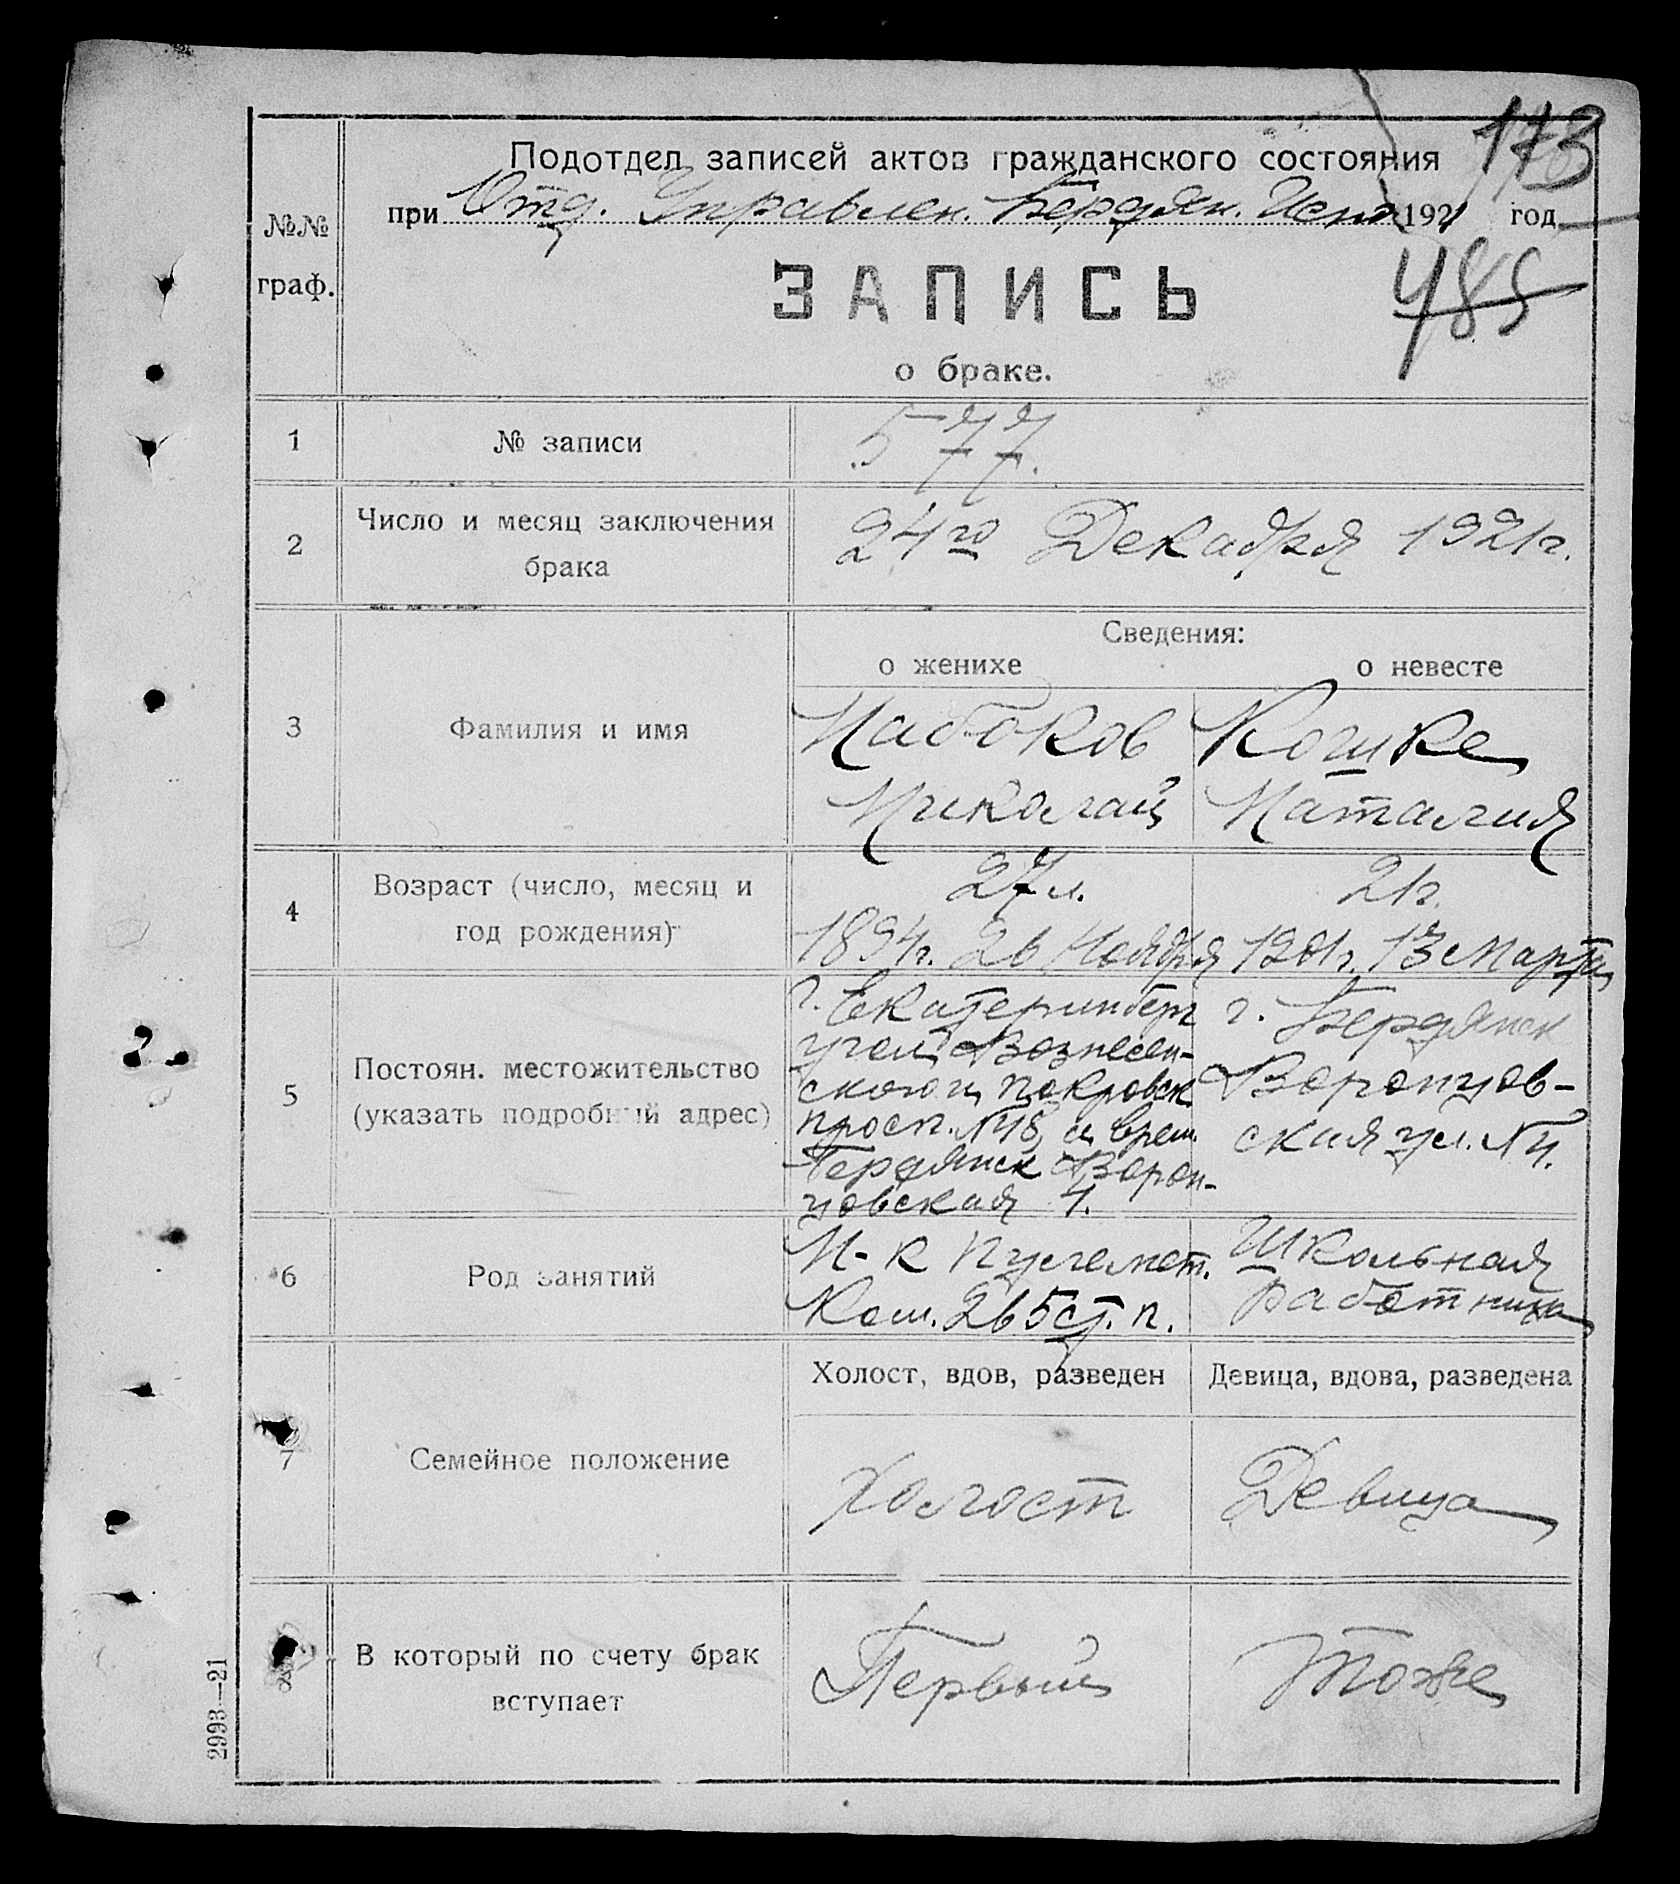 173
Подотдел записей актов гражданского состояния
при Отд. Управлен. Бердян. Исп. 1921 год
485
№№ граф.
ЗАПИСЬ
о браке.
1 № записи 577.
2 Число и месяц заключения брака 24го Декабря 1921г.
Сведения:
о женихе о невесте
3 Фамилия и имя
Набоков Кошке
Николай Наталия
4 Возраст (число, месяц и год рождения)
27 л. 21 г.
1894г. 26 Ноября 1901г. 13 Марта
5 Постоян. местожительство (указать подробный адрес)
г. Екатеринберг
угол Вознесен-
ского и Покровск
просп. №48, и врем.
Бердянск Ворон-
цовская 4.
г. Бердянск
Воронцов-
ская ул. №4.
6 Род занятий
Н-к Пулемет.
Ком. 265 ст. п.
Школьная
работница
7 Семейное положение
Холост, вдов, разведен Девица, вдова, разведена
Холост Девица
8 В который по счету брак вступает
Первый Тоже
2993—21